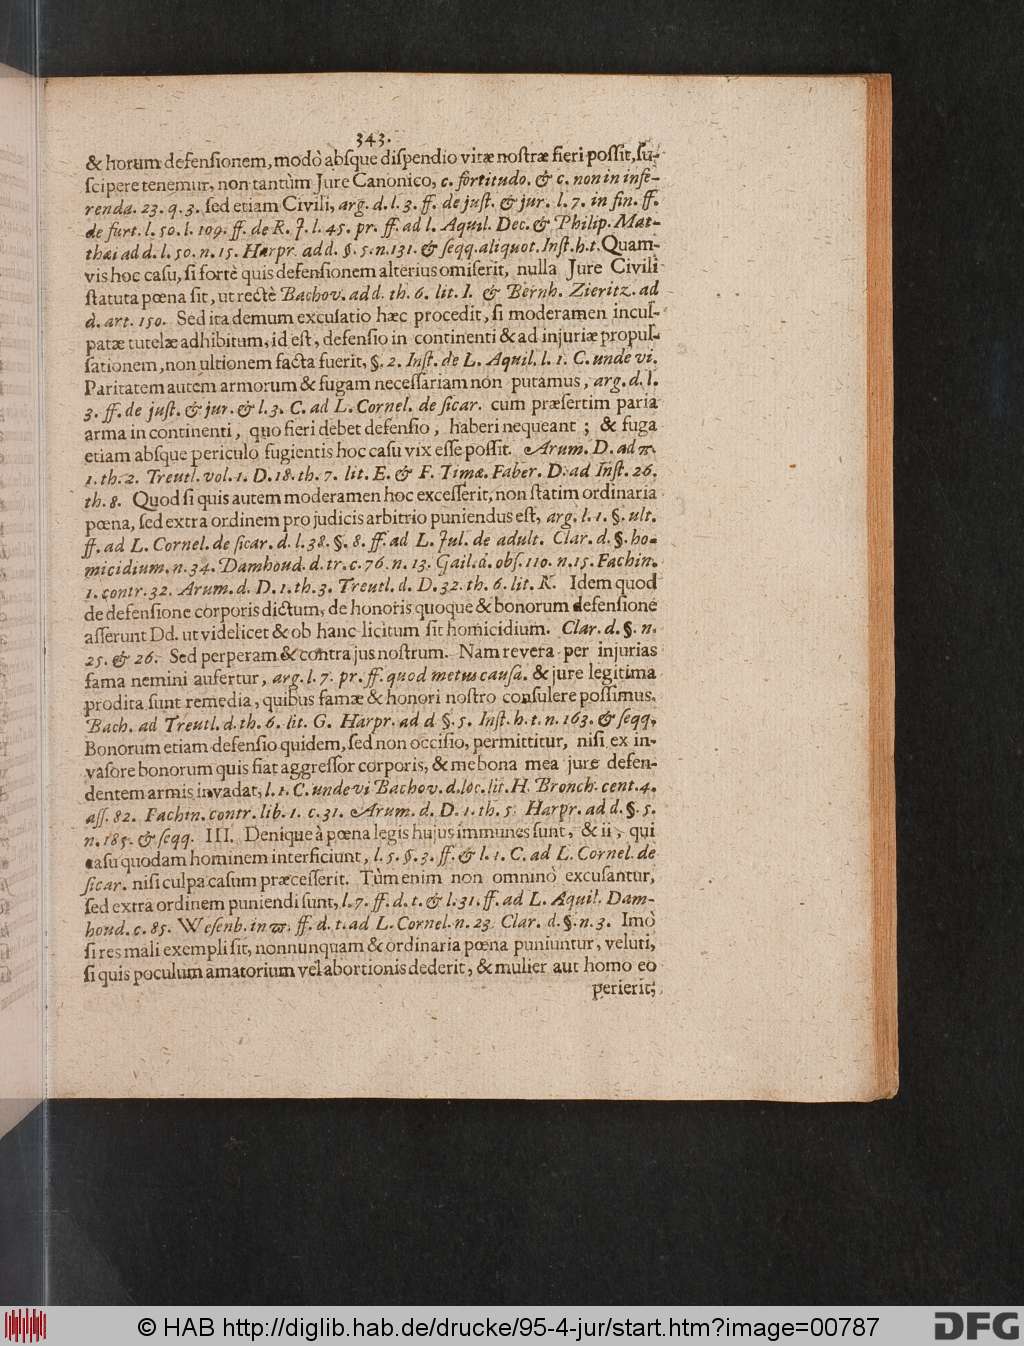 343.
& horum defenſionem, modò abſque diſpendio vitæ noſtræ fieri poſſit, ſu-
ſcipere tenemur, non tantùm Jure Canonico, c. fortitudo. & c. non in infe-
renda. 23. q. 3. ſed etiam Civili, arg. d. l. 3. ff. de juſt. & jur. l. 7. in fin. ff.
de furt. l. 50. l. 109. ff. de R. J. l. 45. pr. ff. ad l. Aquil. Dec. & Philip. Mat-
thæi ad d. l. 50. n. 15. Harpr. add. §. 5. n. 131. & ſeqq. aliquot. Inſt. h. t. Quam-
vis hoc caſu, ſi fortè quis defenſionem alterius omiſerit, nulla Jure Civili
ſtatuta pœna ſit, ut rectè Bachov. add. th. 6. lit. I. & Bernh. Zieritz. ad
d. art. 150. Sed ita demum excuſatio hæc procedit, ſi moderamen incul-
patæ tutelæ adhibitum, id eſt, defenſio in continenti & ad injuriæ propul-
ſationem, non ultionem facta fuerit, §. 2. Inſt. de L. Aquil. l. 1. C. unde vi.
Paritatem autem armorum & fugam neceſſariam non putamus, arg. d. l.
3. ff. de juſt. & jur. & l. 3. C. ad L. Cornel. de ſicar. cum præſertim paria
arma in continenti, quo fieri debet defenſio, haberi nequeant; & fuga
etiam abſque periculo fugientis hoc caſu vix eſſe poſſit. Arum. D. ad π.
1. th. 2. Treutl. vol. 1. D. 18. th. 7. lit. E. & F. Timæ. Faber. D. ad Inſt. 26.
th. 8. Quod ſi quis autem moderamen hoc exceſſerit, non ſtatim ordinaria
pœna, ſed extra ordinem pro judicis arbitrio puniendus eſt, arg. l. 1. §. ult.
ff. ad L. Cornel. de ſicar. d. l. 38. §. 8. ff. ad L. Jul. de adult. Clar. d. §. ho-
micidium. n. 34. Damhoud. d. tr. c. 76. n. 13. Gail. d. obſ. 110. n. 15. Fachin.
1. contr. 32. Arum. d. D. 1. th. 3. Treutl. d. D. 32. th. 6. lit. K. Idem quod
de defenſione corporis dictum, de honoris quoque & bonorum defenſione
aſſerunt Dd. ut videlicet & ob hanc licitum ſit homicidium. Clar. d. §. n.
25. & 26. Sed perperam & contra jus noſtrum. Nam revera per injurias
fama nemini aufertur, arg. l. 7. pr. ff. quod metus cauſa. & jure legitima
prodita ſunt remedia, quibus famæ & honori noſtro conſulere poſſimus.
Bach. ad Treutl. d. th. 6. lit. G. Harpr. ad d §. 5. Inſt. h. t. n. 163. & ſeqq.
Bonorum etiam defenſio quidem, ſed non occiſio, permittitur, niſi ex in-
vaſore bonorum quis fiat aggreſſor corporis, & me bona mea jure defen-
dentem armis invadat, l. 1. C. unde vi Bachov. d. loc. lit. H. Bronch. cent. 4.
aſſ. 82. Fachin. contr. lib. 1. c. 31. Arum. d. D. 1. th. 5. Harpr. ad d. §. 5.
n. 185. & ſeqq. III. Denique à pœna legis hujus immunes ſunt, & ii, qui
caſu quodam hominem interficiunt, l. 5. §. 3. ff. & l. 1. C. ad L. Cornel. de
ſicar. niſi culpa caſum præceſſerit. Tùm enim non omninò excuſantur,
ſed extra ordinem puniendi ſunt, l. 7. ff. d. t. & l. 31. ff. ad L. Aquil. Dam-
houd. c. 85. Weſenb. in π. ff. d. t. ad L. Cornel. n. 23. Clar. d. §. n. 3. Imò
ſi res mali exempli ſit, nonnunquam & ordinaria pœna puniuntur, veluti,
ſi quis poculum amatorium vel abortionis dederit, & mulier aut homo eo
perierit;
© HAB http://diglib.hab.de/drucke/95-4-jur/start.htm?image=00787
DFG